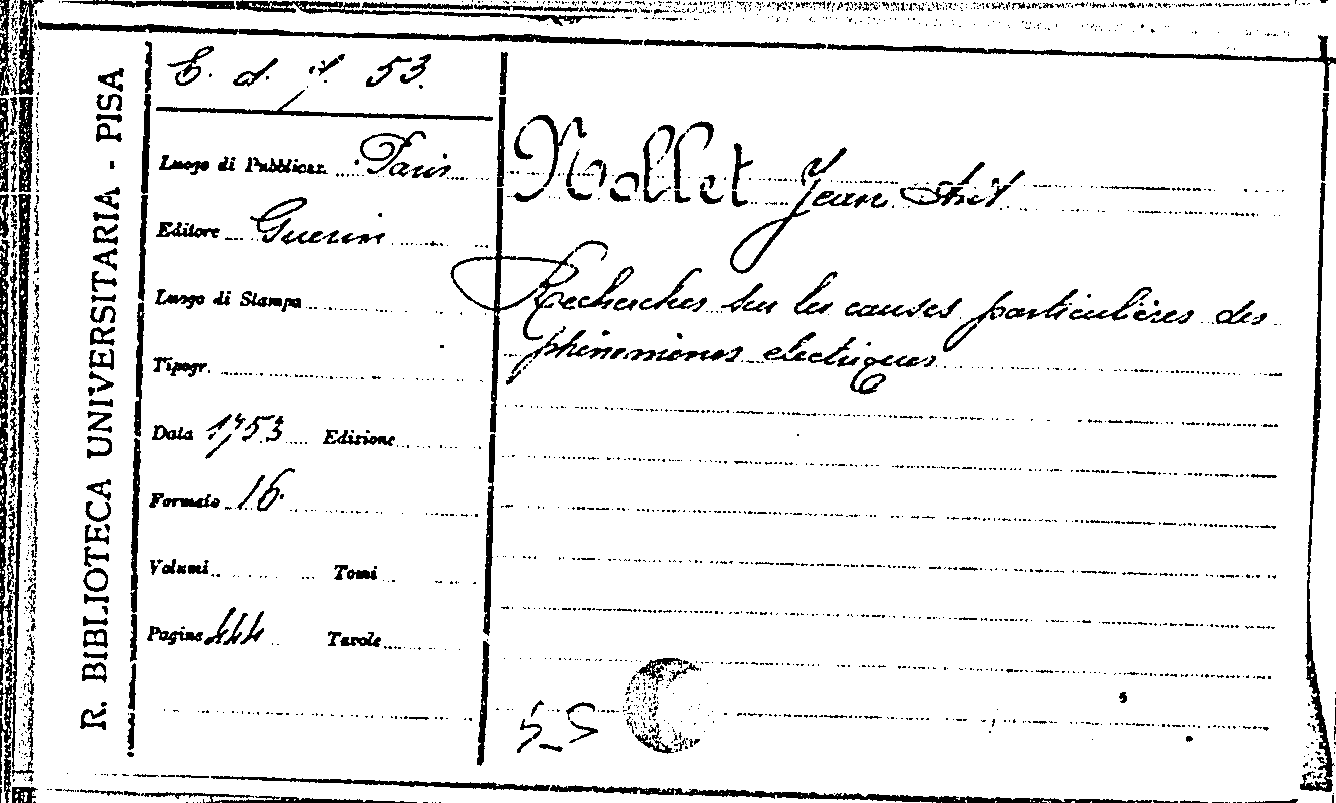 R. BIBLIOTECA UNIVERSITARIA - PISA
E. d. 7. 53.
Luogo di Pubblicaz. Paris
Editore Guerin
Luogo di Stampa
Tipogr.
Data 1753 Edizione
Formato 16.
Volumi Tomi
Pagine 444 Tavole
Nollet Jean Ant
Recherches sur les causes particulières des
phénomènes electriques